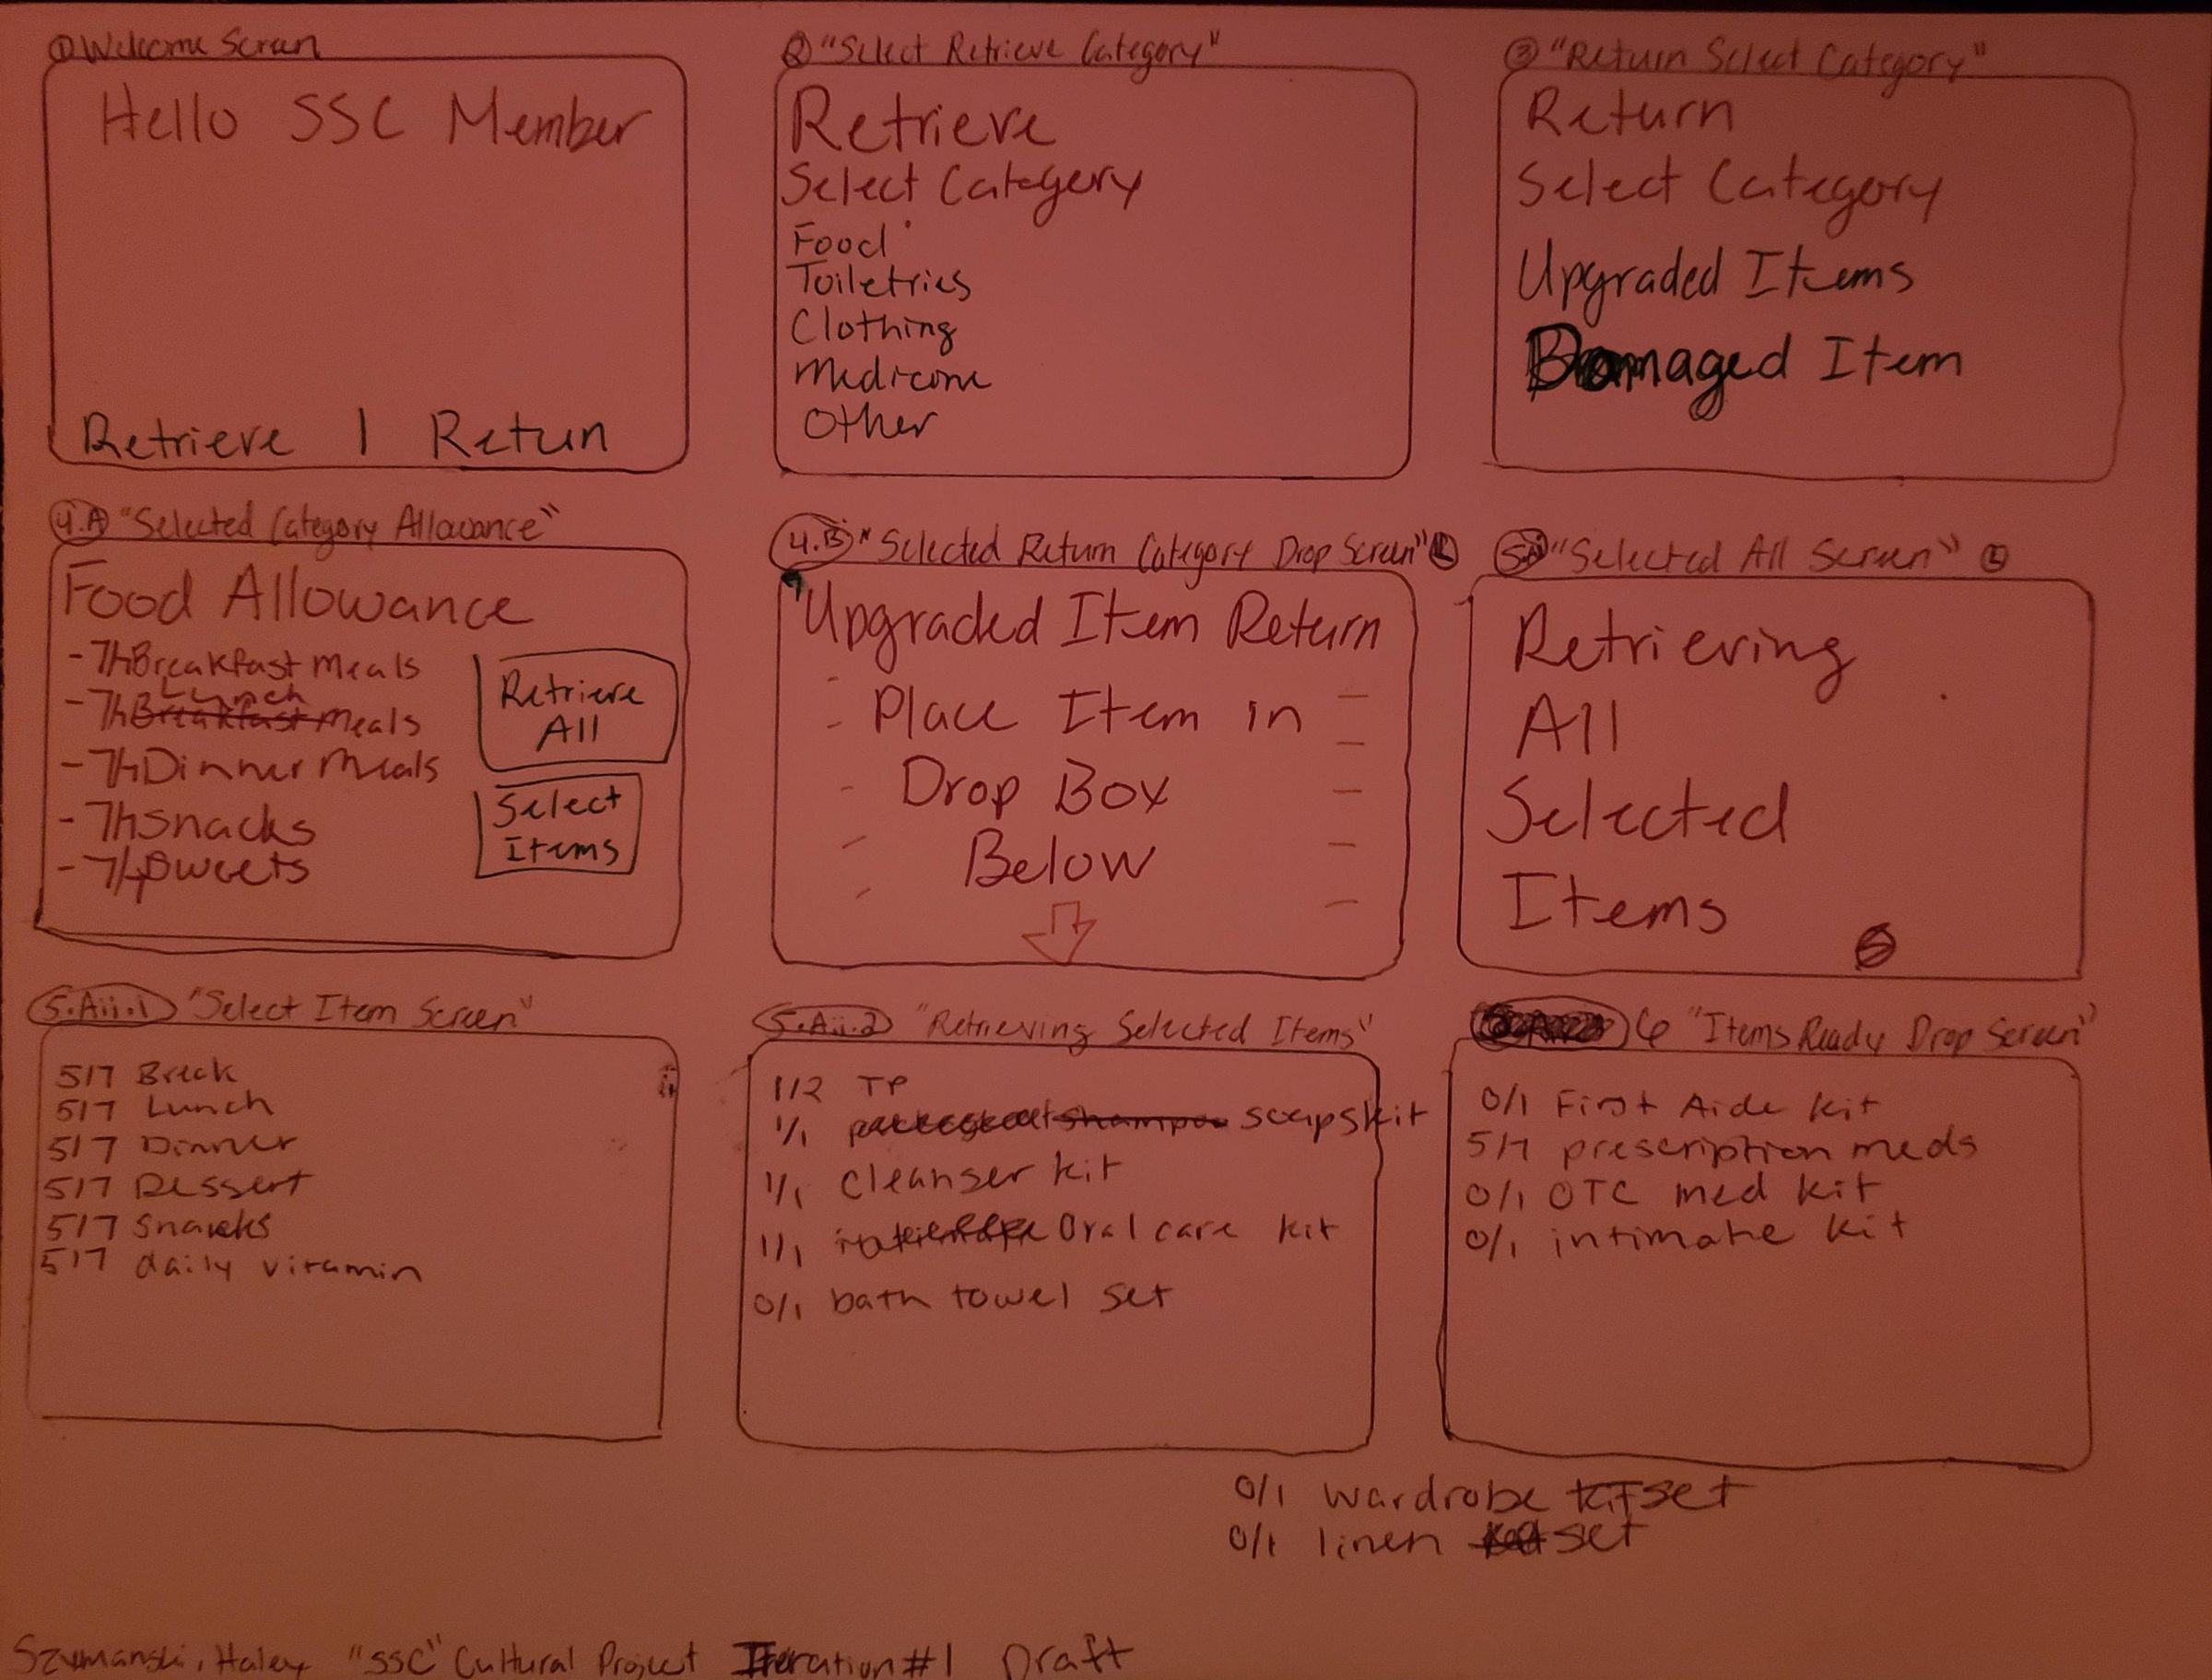 ① Welcome Screen
Hello SSC Member
Retrieve | Return
② "Select Retrieve Category"
Retrieve
Select Category
Food
Toiletries
Clothing
Medicine
Other
③ "Return Select Category"
Return
Select Category
Upgraded Items
Damaged Item
4.A "Selected Category Allowance"
Food Allowance
- 7/7 Breakfast Meals
- 7/7 Breakfast Lunch Meals
- 7/7 Dinner Meals
- 7/7 Snacks
- 7/7 Sweets
Retrieve
All
Select
Items
4.B "Selected Return Category Drop Screen"
Upgraded Item Return
Place Item in
Drop Box
Below
5.A "Selected All Screen"
Retrieving
All
Selected
Items
5.Aii.1 "Select Item Screen"
5/7 Break
5/7 Lunch
5/7 Dinner
5/7 Dessert
5/7 Snacks
5/7 daily vitamin
5.Aii.2 "Retrieving Selected Items"
1/2 TP
1/1 shampoo soaps kit
1/1 cleanser kit
1/1 Oral care kit
0/1 bath towel set
6 "Items Ready Drop Screen"
0/1 First Aide kit
5/7 prescription meds
0/1 OTC med kit
0/1 intimate kit
0/1 wardrobe kit set
0/1 linen set
Szymanski, Haley "SSC" Cultural Project Iteration #1 Draft